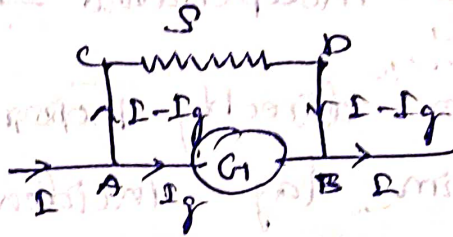 S
C D
I-Ig I-Ig
G
I A Ig B I